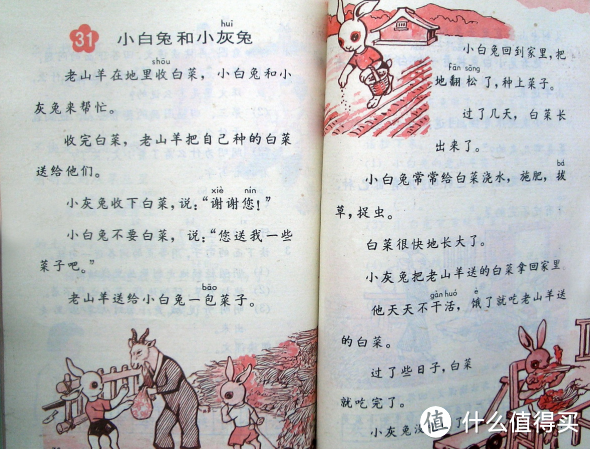 31 小白兔和小灰兔
huī
shōu
老山羊在地里收白菜，小白兔和小
灰兔来帮忙。
收完白菜，老山羊把自己种的白菜
送给他们。
xiè nín
小灰兔收下白菜，说：“谢谢您！”
小白兔不要白菜，说：“您送我一些
菜子吧。”
bāo
老山羊送给小白兔一包菜子。
小白兔回到家里，把
fān sōng
地翻松了，种上菜子。
过了几天，白菜长
出来了。
bá
小白兔常常给白菜浇水，施肥，拔
草，捉虫。
白菜很快地长大了。
小灰兔把老山羊送的白菜拿回家里
gàn huó è
他天天不干活，饿了就吃老山羊送
的白菜。
过了些日子，白菜
就吃完了。
小灰兔没
了
值 什么值得买